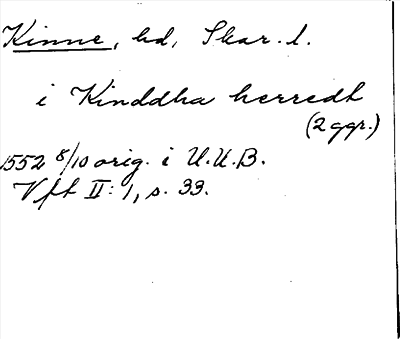 Kinne, hd, Skar. l.
i Kinddha herredt
(2 ggr.)
1552 8/10 orig. i U.U.B.
Vft II: 1, s. 33.